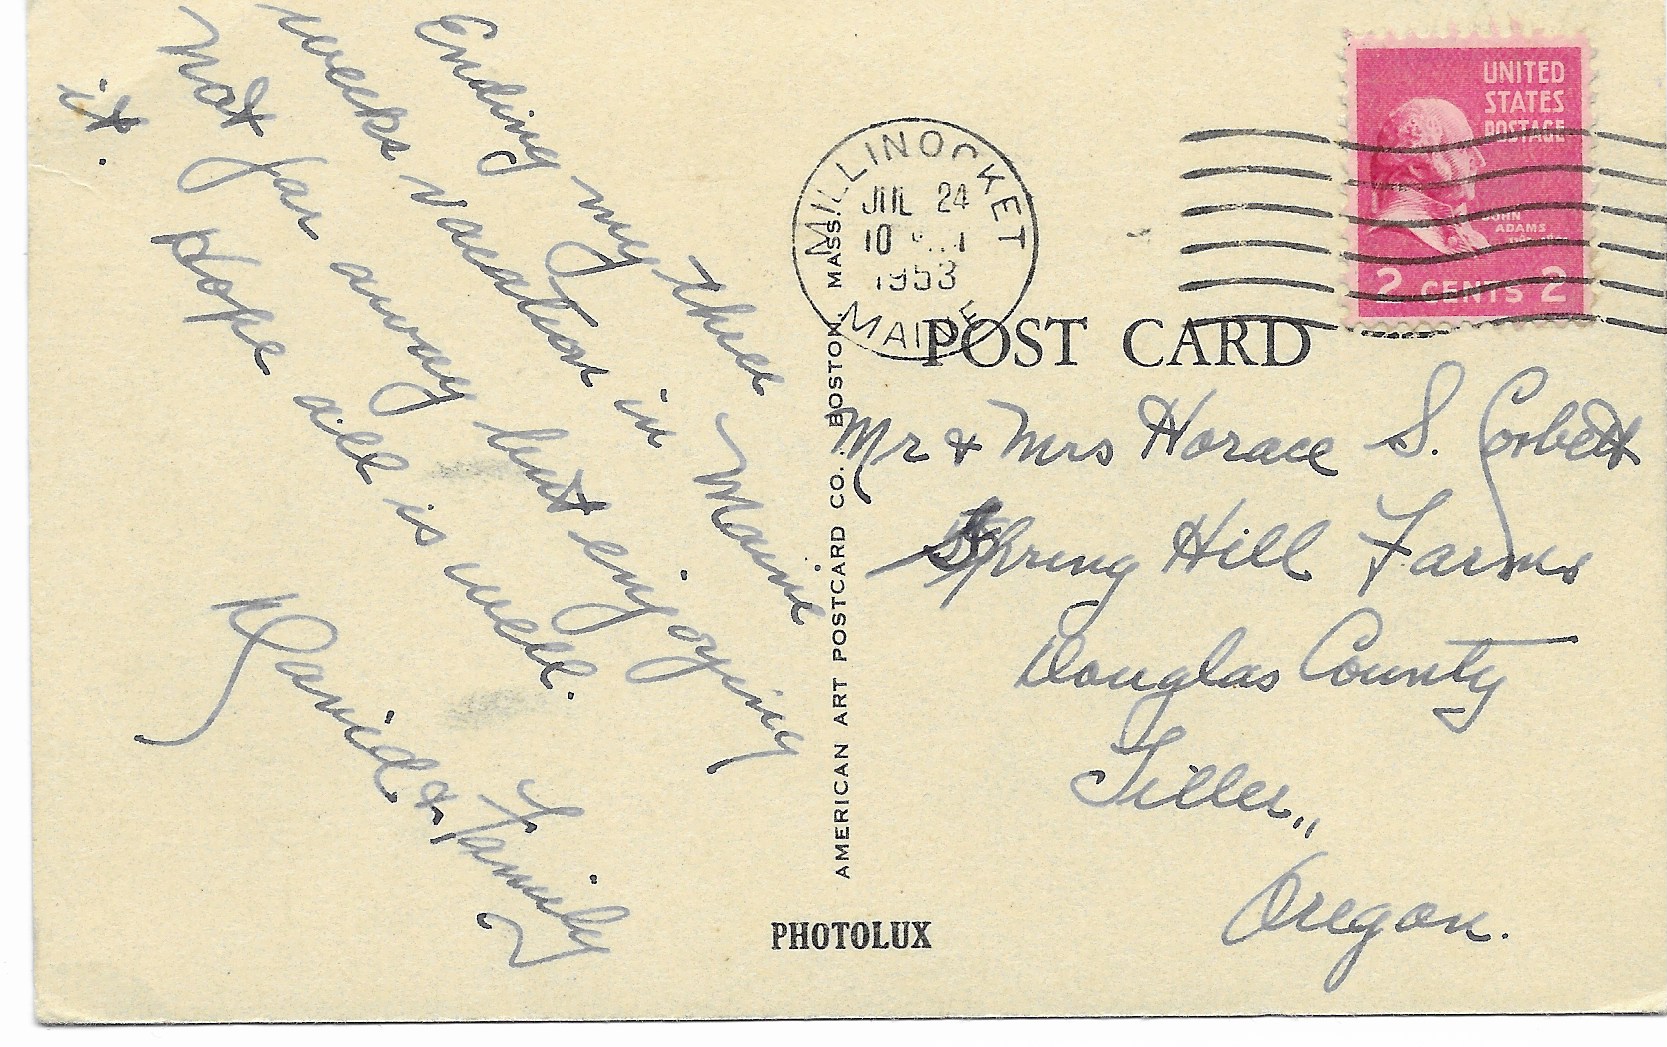 Ending my three
weeks vacation in Maine
Not far away but enjoying
it. Hope all is well.
David & Family
MILLINOCKET
JUL 24
10
1953
MAINE
UNITED
STATES
POSTAGE
JOHN
ADAMS
2 CENTS 2
POST CARD
Mr & Mrs Horace S. Corbett
Spring Hill Farms
Douglas County
Tiller,,
Oregon.
AMERICAN ART POSTCARD CO. . BOSTON. MASS.
PHOTOLUX